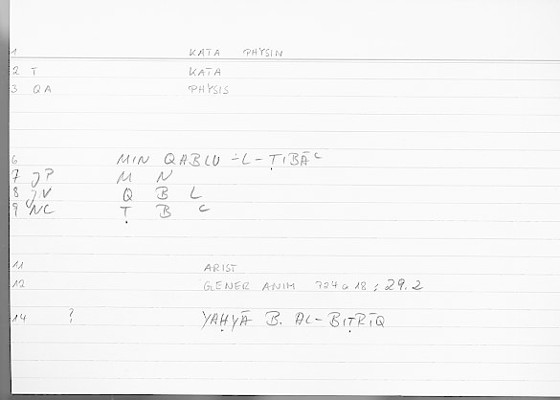 1 KATA PHYSIN
2 T KATA
3 QA PHYSIS
6 MIN QABLU ʾL-ṬIBĀʿ
7 JP M N
8 JV Q B L
9 NC Ṭ B ʿ
11 ARIST
12 GENER ANIM 724a18 ; 29.2
14 ? YAḤYĀ B. AL-BIṬRĪQ